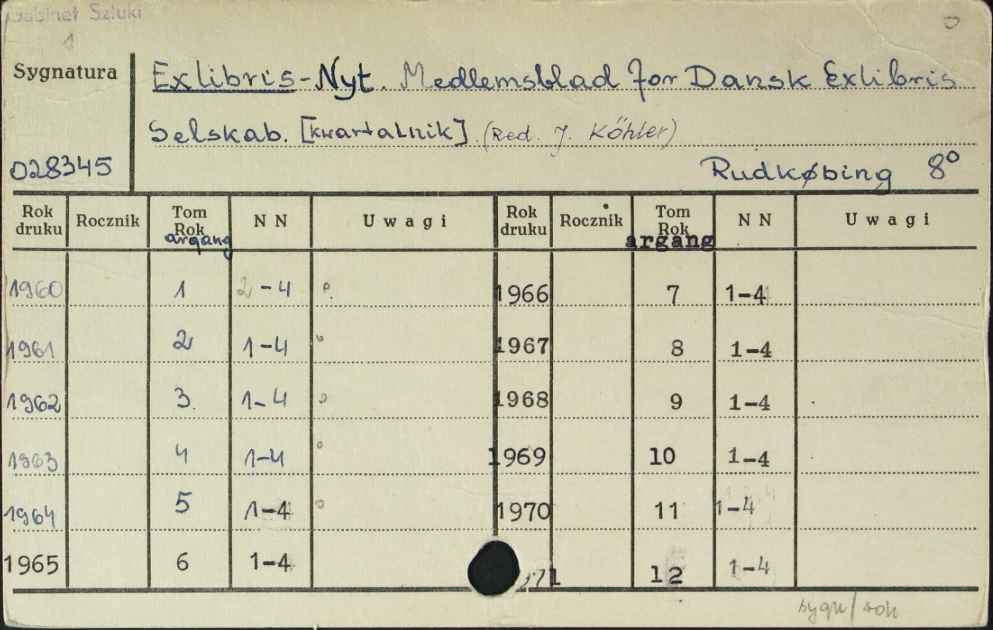 Gabinet Sztuki
Sygnatura
Exlibris-Nyt. Medlemsblad for Dansk Exlibris
Selskab. [kwartalnik] (Red. J. Köhler)
028345 Rudkøbing 8°
Rok druku Rocznik Tom Rok argang NN Uwagi Rok druku Rocznik Tom Rok argang NN Uwagi
1960 1 2-4 1966 7 1-4
1961 2 1-4 1967 8 1-4
1962 3 1-4 1968 9 1-4
1963 4 1-4 1969 10 1-4
1964 5 1-4 1970 11 1-4
1965 6 1-4 71 12 1-4
sygn/rok